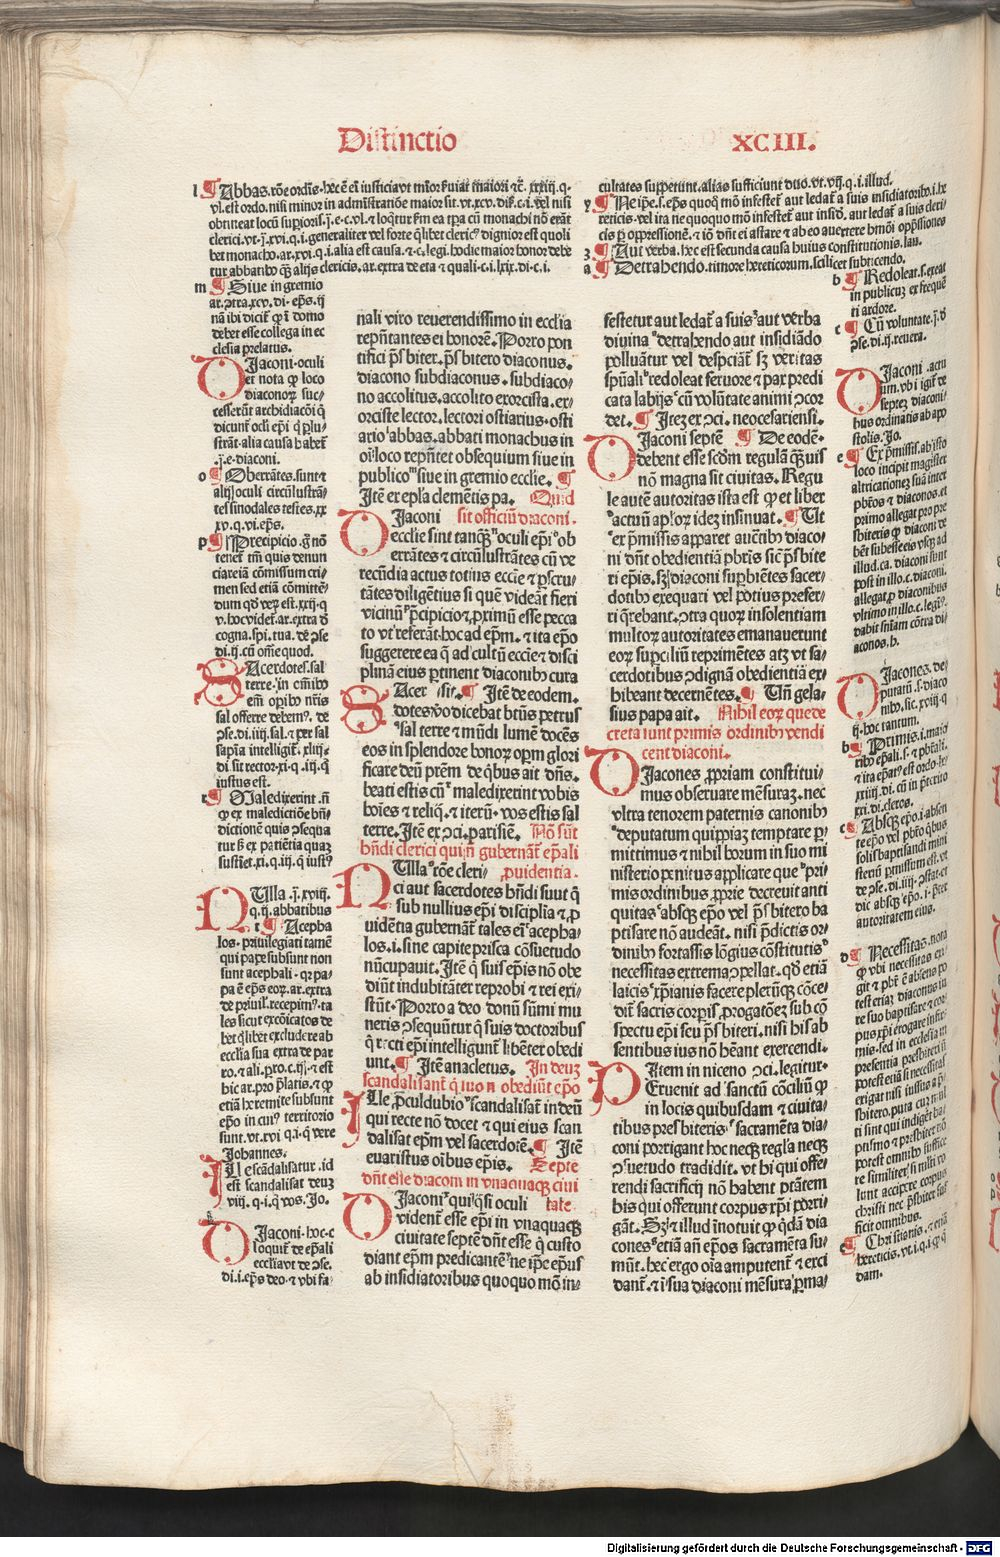 Distinctio XCIII.
l ¶ Abbas. rōe ordīs. hec ē ei iusticia vt mīor ẜuiat maiori ⁊c̄. xxiij. q.
vl. est ordo. nisi minor in admīstratiōne maior sit. vt. xcv. dis. c. i. vel nisi
obtineat locū supioris. j. e. c. vl. ⁊ loq̄tur ẜm ea tp̄a cū monachi nō erāt
clerici. vt. j. xvi. q. i. generaliter vel forte q̄libet cleric⁹ dignior est quoli
bet monacho. ar. xvi. q. i. alia est causa. ⁊. c. legi. hodie maior honor debe
tur abbatib⁹ qꝫ alijs clericis. ar. extra de eta ⁊ quali. c. i. lxix. di. c. i.
m ¶ Siue in gremio
ar. ꝯtra. xcv. di. ep̄s. ij
nā ibi dicit̄ ꝙ ī domo
debet esse collega in ec
clesia prelatus.
DIaconi. oculi
et nota ꝙ loco
diaconoꝝ suc-
cesserūt archidiacōi q̄
dicunt̄ oc̄li ep̄i q̄ p̄lu-
strāt. alia causa habet̄
.j. e. diaconi.
o ¶ Oberrātes. sunt ⁊
alij oculi circūlustrā-
tes sinodales testes. xx
xv. q. vi. ep̄s.
p ¶ Precipicio. g̊ nō
tenet̄ tm̄ quis denun
ciare iā cōmissum cri-
men sed etiā cōmittē-
dum qd̄ veꝝ est. xxij. q
v. hoc videt̄. ar. extra ð
cogna. spi. tua. ðꝯse.
di. ij. cū om̄e quod.
SAcerdotes. sal
terre. in cīnib⁹
em̄ opib⁹ nr̄is
sal offerre debem⁹. de
ꝯse. di. iiij. sal. ⁊ per sal
sapīa intelligit̄. xliij.
di. sit rector. xi. q. iij. q̄
iustus est.
r ¶ Maledixerint. n̄
ꝙ ex maledictiōe bn̄-
dictionē quis ꝯsequa
tur ẜ ex patiētia quaꝫ
sustiet. xi. q. iij. q̄ iust⁹
NUlla. j. xviij.
q. ij. abbatibus
t ¶ Acepha
los. priuilegiati tamē
qui pape subsunt non
sunt acephali. qꝛ pa-
pa ē ep̄s eoꝝ. ar. extra
de priuil. recepim⁹. ta
les sicut excōicatos de
bet q̄libet excludere ab
ecclīa sua extra de par
ro. ⁊ ali. pro. c. ij. ⁊ est
hic ar. pro p̄latis. ⁊ ꝙ
etiā heremite subsunt
ep̄o in cuī⁹ territorio
sunt. vt. xvi. q. i. q̄ vere
Johannes.
ILle scādalisatur. id
est scandalisat deuꝫ
viij. q. i. q̄ vos. Jo.
DIaconi. hoc. c
loquit̄ de ep̄ali
ecclīa vt de ꝯse.
di. i. ep̄s deo. ⁊ vbi fa-
nali viro reuerendissimo in ecclīa
repn̄tantes ei honorē. Porto pon
tifici p̄sbiter. p̄sbitero diaconus.
diacono subdiaconus. subdiaco-
no accolitus. accolito exorcista. ex-
orciste lector. lectori ostiarius. osti
ario abbas. abbati monachus in
oī loco repn̄tet obsequium siue in
publico siue in gremio ecclīe. ¶
Jtē ex epl̄a clemētis pa. Quid
DIaconi sit officiū diaconi.
ecclīe sint tanqꝫ oculi ep̄i ob
errātes ⁊ circūlustrātes cū ve
recūdia actus totius ecclīe ⁊ ꝑscru-
tātes diligētius si quē videāt fieri
vicinū p̄cipicio ⁊ ꝓximū esse pecca
to vt referāt. hoc ad ep̄m. ⁊ ita ep̄o
suggerere ea q̄ ad cultū ecclīe ⁊ disci
plinā eius ꝑtinent diaconib⁹ cura
SAcer sit. ¶ Jtē de eodem.
dotes v̄o dicebat bt̄us petrus
sal terre ⁊ mūdi lumē docēs
eos in splendore bonoꝝ opm̄ glori
ficare deū prēm de q̄bus ait dn̄s.
beati estis cū maledixerint vobis
hoīes ⁊ reliq̄. ⁊ iterū. vos estis sal
terre. Jtē ex ꝯci. parisiē. Nō sūt
bn̄di clerici qui n̄ gubernāt̄ ep̄ali
NUlla rōe cleri- ꝓuidentia.
ci aut sacerdotes hn̄di sunt q̄
sub nullius ep̄i disciplīa ⁊ ꝓ
uidētia gubernāt̄ tales em̄ acepha-
los. i. sine capite prisca cōsuetudo
nūcupauit. Jtē q̄ suis ep̄is nō obe
diūt indubitāter reprobi ⁊ rei exi-
stūt. Porto a deo donū sūmi mu
neris ꝯsequūtur q̄ suis doctoribus
q̄ recti ep̄i intelligunt̄ libēter obedi
unt. ¶ Jtē anacletus. Jn deuꝫ
scandalisant̄ q̄ suo n̄ obediūt ep̄o
ILle p̄culdubio scandalisat̄ in deū
qui recte nō docet ⁊ qui eius scan
dalisat ep̄m vel sacerdotē. ¶ Jtē
euaristus oībus ep̄is. Septē
dn̄t esse diaconi in vnaquaqꝫ ciui
DIaconi qui q̄si oculi tate.
vident̄ esse ep̄i in vnaquaqꝫ
ciuitate septē dn̄t esse q̄ custo
diant ep̄m predicantē ne ip̄e ep̄us
ab insidiatoribus quoquo mō in-
cultates suppetunt. alias sufficiunt duo. vt. vij. q. i. illud.
y ¶ Ne ip̄e. s. ep̄s quoq̄ mō infestet̄ aut ledat̄ a suis insidiatorib⁹. i. he
reticis. vel ita ne quoquo mō infestet̄ aut insid̄. aut ledat̄ a suis cleri-
cis p̄ oppressionē. ⁊ iō dn̄t ei astare ⁊ ab eo auertere hmōi opp̄ssiones
z ¶ Aut verba. hec est secunda causa huius constitutionis. lau.
a ¶ Detrahendo. timore hereticorum. scilicet subticendo.
festetur aut ledat̄ a suis aut v̄rba
diuina detrahendo aut insidiādo
polluātur vel despciāt̄ sꝫ veritas
spūali redoleat feruore ⁊ pax predi
cata labijs cū volūtate animi ꝯcor
det. ¶ Jtez ex ꝯci. neocesariensi.
DIaconi septē ¶ De eodē.
debent esse scd̄m regulā qꝫuis
nō magna sit ciuitas. Regu
le autē autoritas ista est ꝙ et liber
actuū apl̄oꝝ idez insinuat. ¶ Ut
ex p̄missis apparet auctīb⁹ diaco
ni dn̄t obedientiā pbtis sic p̄sbite
ri ep̄is. sꝫ diaconi supbiētes sacer-
dotib⁹ exequari vel potius prefer-
ri q̄rebant. ꝯtra quoꝝ insolentiam
multoꝝ autoritates emanauerunt
eoꝝ supciliū reprimētes atꝫ vt sa-
cerdotibus ꝯdignā obedientiā ex
hibeant decernētes. ¶ Un̄ gela-
sius papa ait. Nihil eoꝝ que de
creta sunt primis ordinib⁹ vendi
cent diaconi.
DIacones ꝓpriam constitui-
mus obseruare mēsuraꝫ. nec
vltra tenorem paternis canonib⁹
deputatum quippiaꝫ temptare p̄
mittimus ⁊ nihil horum in suo mi
nisterio penitus applicare que pri-
mis ordinibus ꝓprie decreuit anti
quitas absqꝫ ep̄o vel p̄sbitero ba
ptisare nō audeāt. nisi p̄dictis or-
dinib⁹ fortassis lōgius cōstitutis
necessitas extrema ꝯpellat. qd̄ etiā
laicis xp̄ianis facere pleruqꝫ cōce-
dit̄ sacris corpīs. ꝓrogatōeꝫ sub cō
spectu ep̄i seu p̄sbiteri. nisi his ab
sentibus ius nō hēant exercendi.
¶ Jtem in niceno ꝯci. legitur.
PEruenit ad sanctū cōciliū ꝙ
in locis quibusdam ⁊ ciuita-
tibus presbiteris sacramēta dia-
coni porrigant hoc neqꝫ regla neqꝫ
ꝯsuetudo tradidit. vt hi qui offe-
rendi sacrificij nō habent ptātem
his qui offerunt corpus xp̄i porri-
gāt. Sꝫ ⁊ illud īnotuit ꝙ q̄dā dia
cones etiā añ ep̄os sacramēta su-
mūt. hec ergo oīa amputent̄ ⁊ exci
dant̄. ⁊ ī sua diaconi mēsura ꝑma-
b ¶ Redoleat. s. exeat
in publicuꝫ ex frequē
ti ardore.
c ¶ Cū voluntate. j. ð
ꝯse. di. ij. reuera.
DIaconi. actu
um. vbi igit̄ de
septeꝫ diaconi-
bus ordinatis ab apo
stolis. Jo.
e ¶ Ex p̄missis. ab isto
loco incipit magister
altricationeꝫ suā inter
pbr̄os ⁊ diaconos. et
primo allegat pro pre
sbiteris ꝙ diaconi de
bēt subesse eis vsqꝫ ad
illud. ca. diaconi sunt
post in illo. c. diaconi.
allegat ꝓ diaconibus
vltimo in illo. c. legim⁹.
dabit sniam cōtra di-
aconos. h.
DIacones. de-
putatū. s. diaco
nib⁹. sic. xviij. q
ij. hoc tantum.
b ¶ Primis. i. maio-
rib⁹ ep̄ali. s. ⁊ pbr̄ali.
⁊ ita ep̄at⁹ est ordo. lx-
xxiij. di. cū in p̄terito
xxi. di. cleros.
c ¶ Absqꝫ ep̄o. i. absen
te ep̄o vel pbr̄o q̄bus
solis baptisandi mini
steriū p̄missum est. vt
de ꝯse. di. iiij. ꝯstat. et
dic absqꝫ ep̄o. i. p̄ter
autoritatem eius.
d ¶ Necessitas. nota
ꝙ vbi necessitas exi-
git ⁊ pbr̄ ē absens po
test etiaꝫ diaconus iu
re suo baptisare ⁊ cor-
pus xp̄i erogare infir-
mis. sed in ecclesia in
presentia presbiteri n̄
potest etiā si necessitas
exigat nisi iussus a p̄-
sbitero. puta cum mul
ti sunt qui indigēt ba-
ptismo ⁊ presbiter nō
potest omnib⁹ sufficere
re similiter si multi vo
lunt accipere corpus
christi nec p̄sbiter suf-
ficit omnibus.
e ¶ Christianis. ⁊ etiā
hereticis. vt. i. q. i. q̄ q̄
dam.
Digitalisierung gefördert durch die Deutsche Forschungsgemeinschaft - DFG